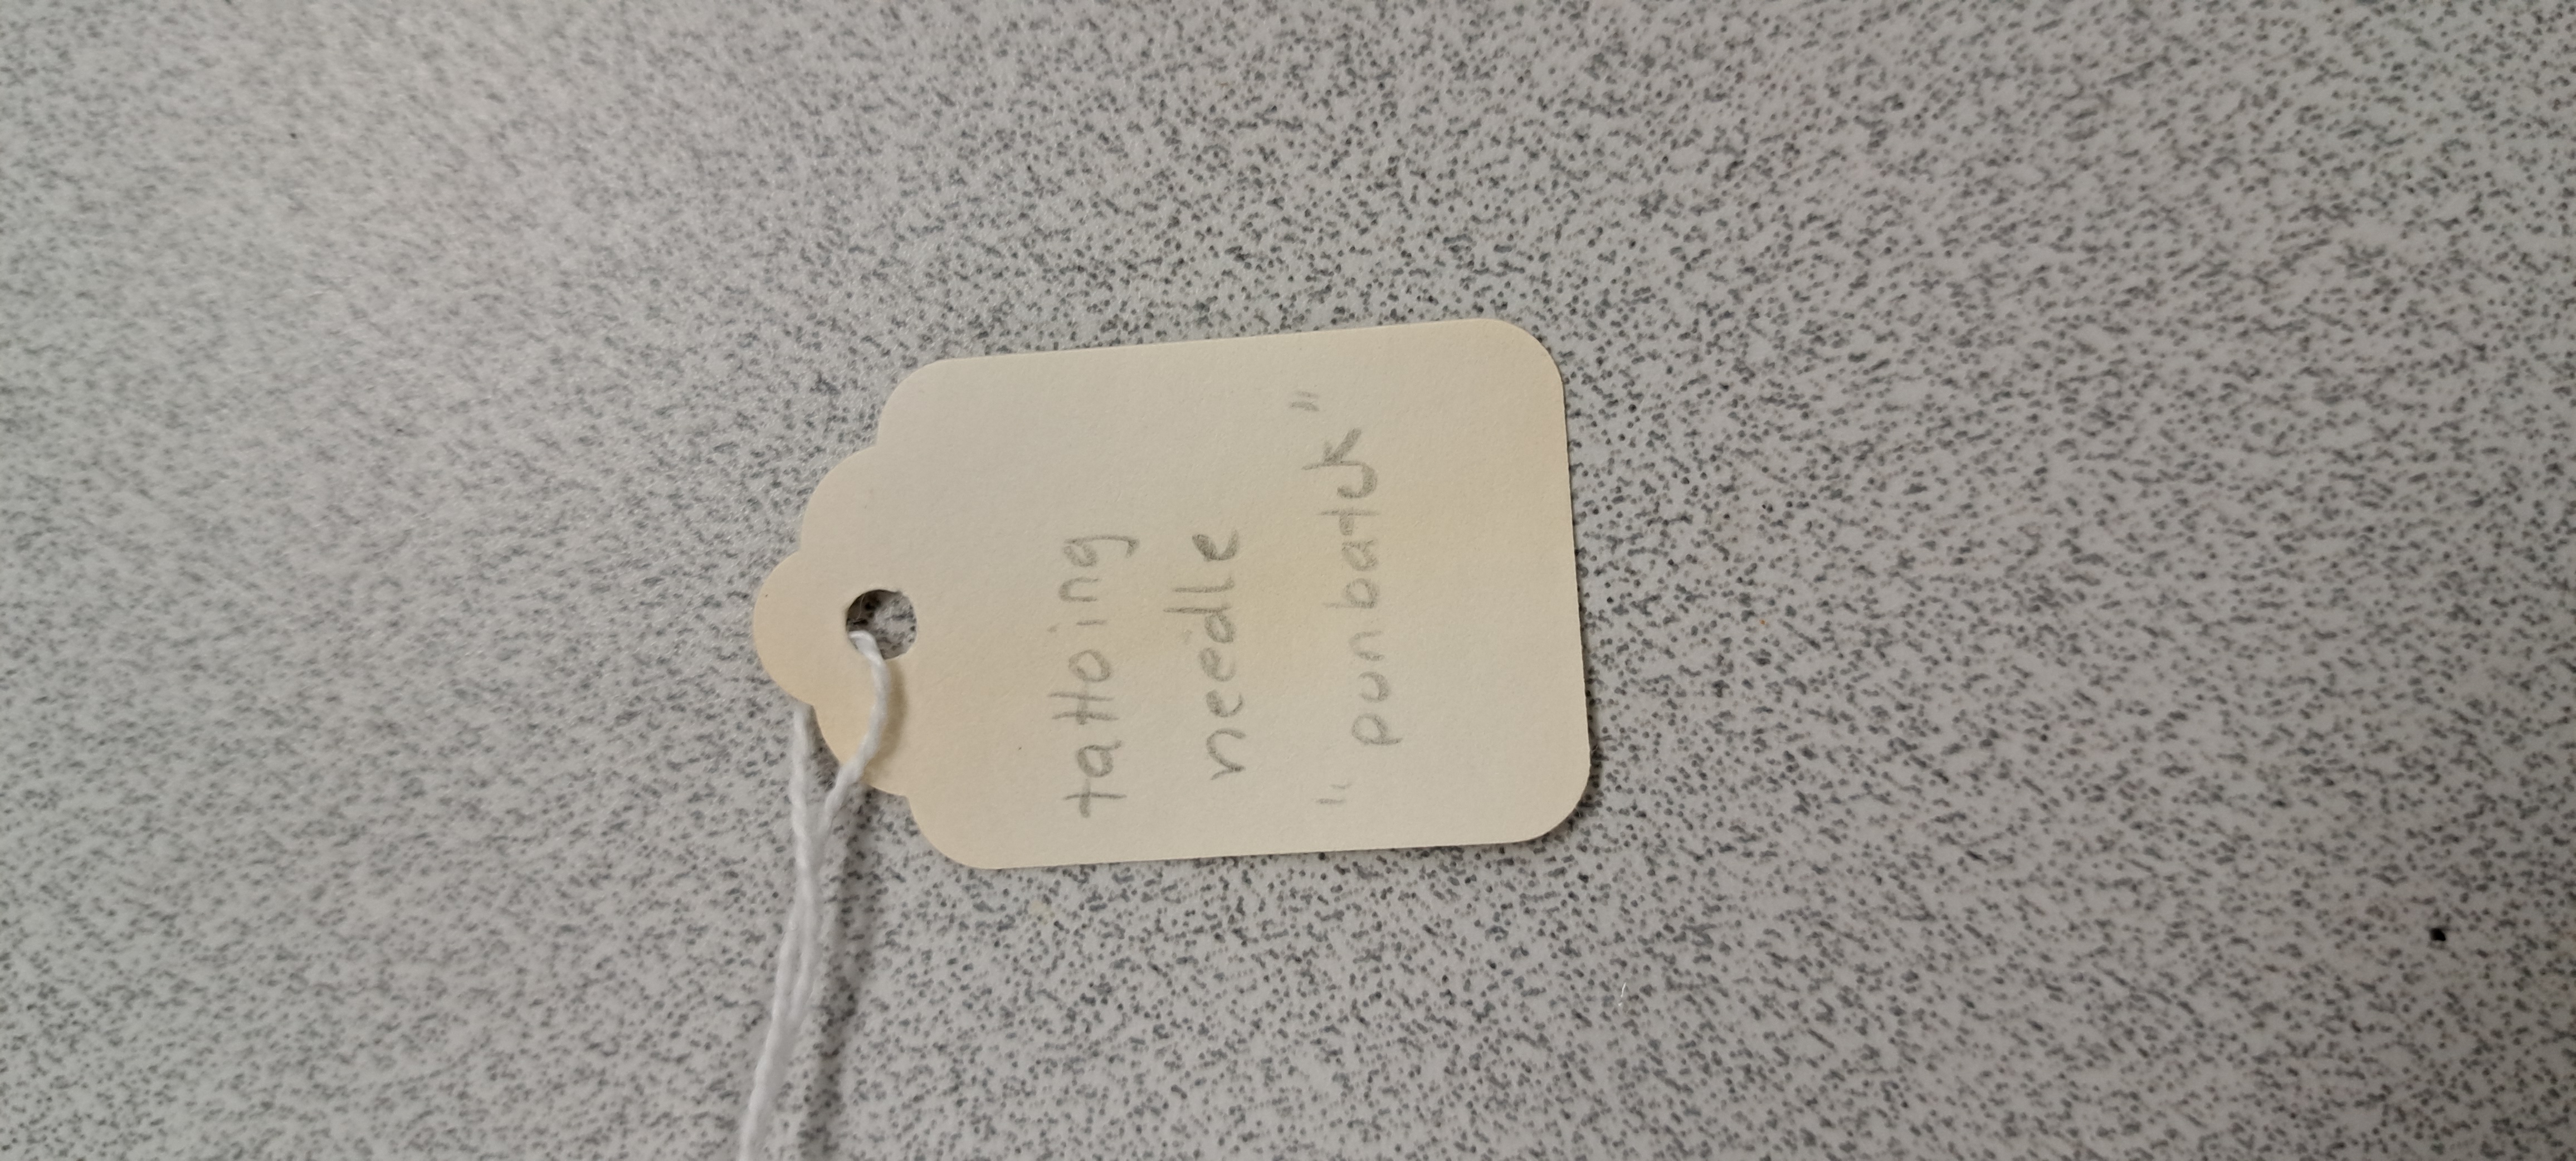 tattoing
needle
"punbatek"